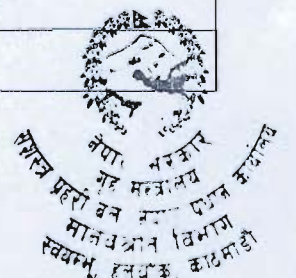 नेपाल सरकार
गृह मन्त्रालय
सशस्त्र प्रहरी बल प्रधान कार्यालय
मानवश्रोत विभाग
स्वयम्भु हलचोक काठमाडौं